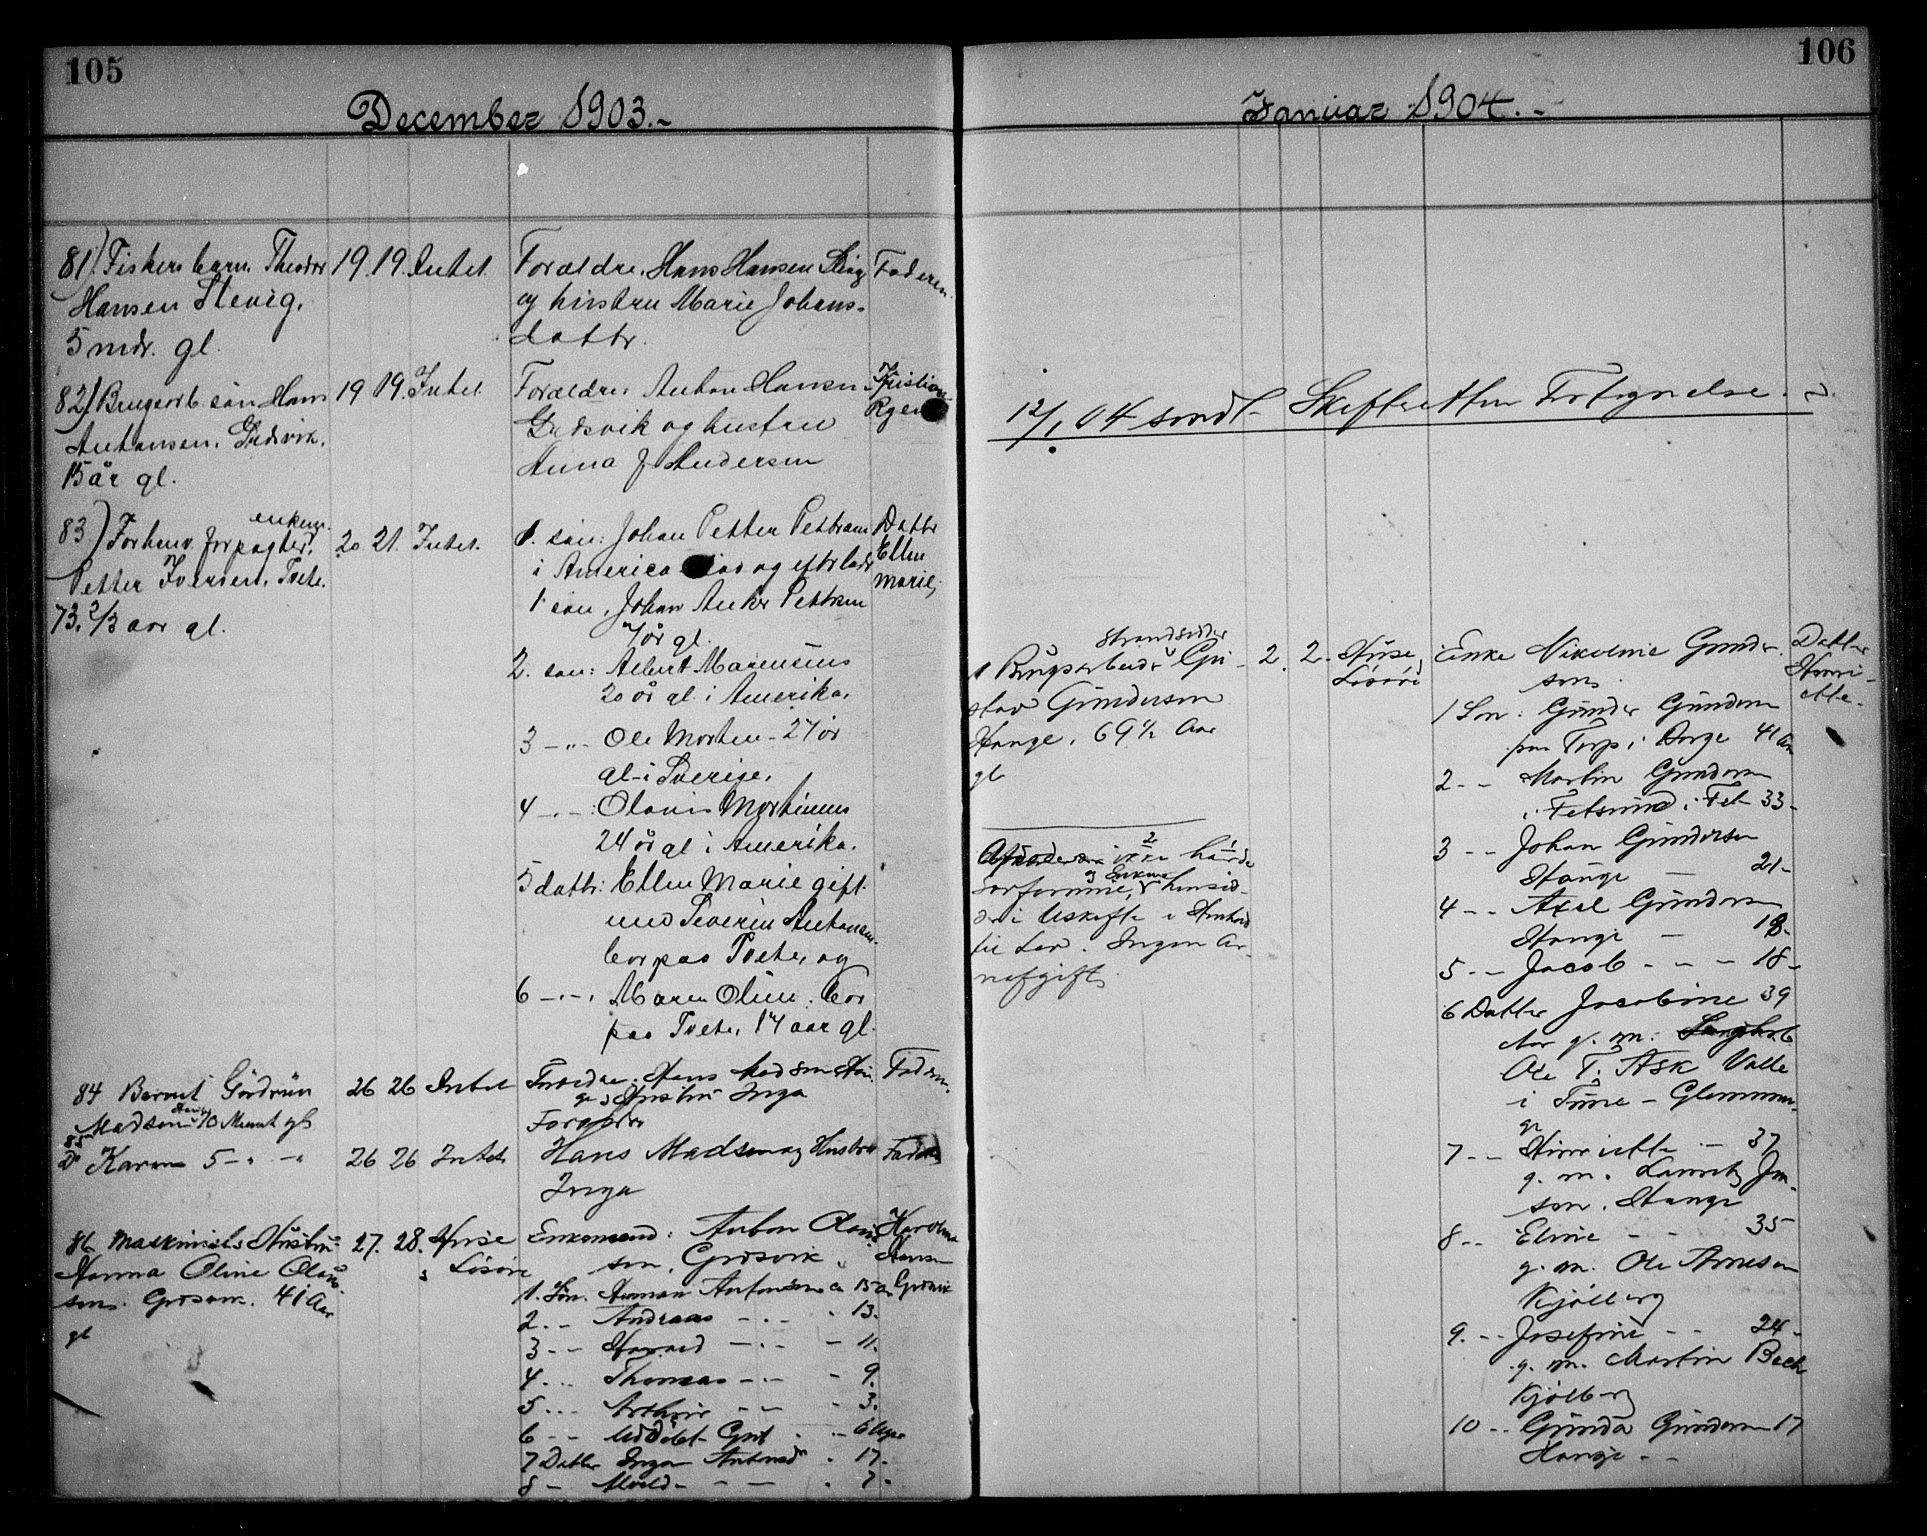 105
December 1903.-
81) Fiskers barn. Theodor
Hansen Stevig.
5 mdr. gl.
19. 19. Intet
Forældre. Hans Hansen
og hustru Marie Johans-
datter.
Faderen.
82) Brugsarb. søn Hans
Antonsen.
15 år gl.
19 19. Intet
Forældre. Anton Hansen
og hustru
Anna J. Andersen
Kristian
83) Forhenv. forpagter, enkem.
Petter Iversen, Tvete.
73. 2/3 aar gl.
20. 21. Intet.
1. søn: Johan Petter Pettersen
i America død og efterlader
1 søn, Johan Anker Pettersen
7 år gl.
2. søn: Albert Marensius
20 år gl. i Amerika.
3 -"- Ole Morten - 27 år
gl. i Sverige.
4 -"-: Olavis Mortinius
24 år gl. i Amerika.
5 datter: Ellen Marie gift
med Severin Antonsen
bor paa Tvete, og
6 -"-, Maren Oline. bor
paa Tvete, 17 aar gl.
Datter
Ellen
Marie,
84 Barnet Gudrun
Madsen 10 Maaned gl
26 26 Intet
Forældre. Hans Madsen
og Hustru Inga
Faderen.
85
Do Karen 5 -"- -"-
26 26 Intet
Forældre
Hans Madsen og Hustru
Inga
Faderen
86 Maskinists Hustru
Hanna Oline Olaus-
sens. Gresvik. 41 Aar
gl
27. 28. Huse
Løsøre
Enkemand: Anton Olaus-
sen, Gresvik
1. Søn. Herman Antonsen 15 a
2 - - Andreas - " - 13.
3 - - Harald - " - 11.
4 - - Thomas - " - 9.
5 - - Arthur - - 3.
6 - - Udøbt Gut - - 6 Uger
7 Datter Inga Antonsd 17.
8 - - - 7.
Karoline
Hansen
Gresvik
106
Januar 1904.-
12/1 04 sendt Skifteretten Fortegnelse.
1 Brugsarbeider Strandsidder Gu-
stav Gundersen
Hauge. 69 1/2 Aar
gl
2. 2. Huse
Løsøre
Enke Nikoline Gunder-
sens
1 Søn: Gunder Gundersen
paa Torp i Borge 41 Aar
2 - - Martin Gundersen
i Fetsund i Fet 33 -
3 - - Johan Gundersen
Hauge - 21 -
4 - - Axel Gundersen
Hauge - 18 -
5 - - Jacob - - - 18 -
6 Datter Jacobine 39
Aar g. m.
Ole T. Ask Valle
i Tune - Glemmin-
ge
7 - - Henriette - 37
g. m. Lauritz Jen-
sen, Hauge
8 - - Eline - - 35
g. m. Ole Arnesen
Kjølberg
9. - - Josefine - - 24 -
g. m. Martin Bach
Kjølberg
10 - - Gunda Gundersen 17
Hauge - -
Datter
Henri-
ette.
Afdøde ikke havde
særformue, og Enken hensid-
der i Uskifte i Henhold
til Lov. Ingen Ar-
veafgift.